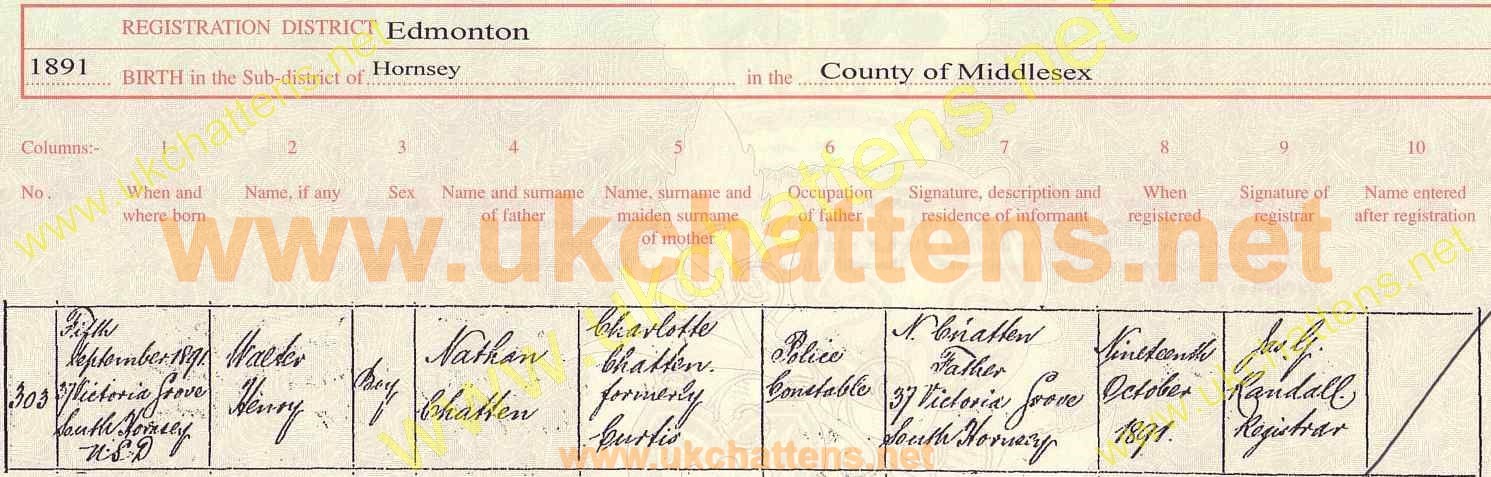 REGISTRATION DISTRICT Edmonton
1891 BIRTH in the Sub-district of Hornsey in the County of Middlesex
Columns:- 1 2 3 4 5 6 7 8 9 10
No. When and where born Name, if any Sex Name and surname of father Name, surname and maiden surname of mother Occupation of father Signature, description and residence of informant When registered Signature of registrar Name entered after registration
www.ukchattens.net
www.ukchattens.net
www.ukchattens.net
www.ukchattens.net
www.ukchattens.net
303
Fifth
September 1891
37 Victoria Grove
South Hornsey
U.S.D
Walter
Henry
Boy
Nathan
Chatten
Charlotte
Chatten
formerly
Curtis
Police
Constable
N. Chatten
Father
37 Victoria Grove
South Hornsey
Nineteenth
October
1891.
Jas G.
Randall
Registrar
www.ukchattens.net